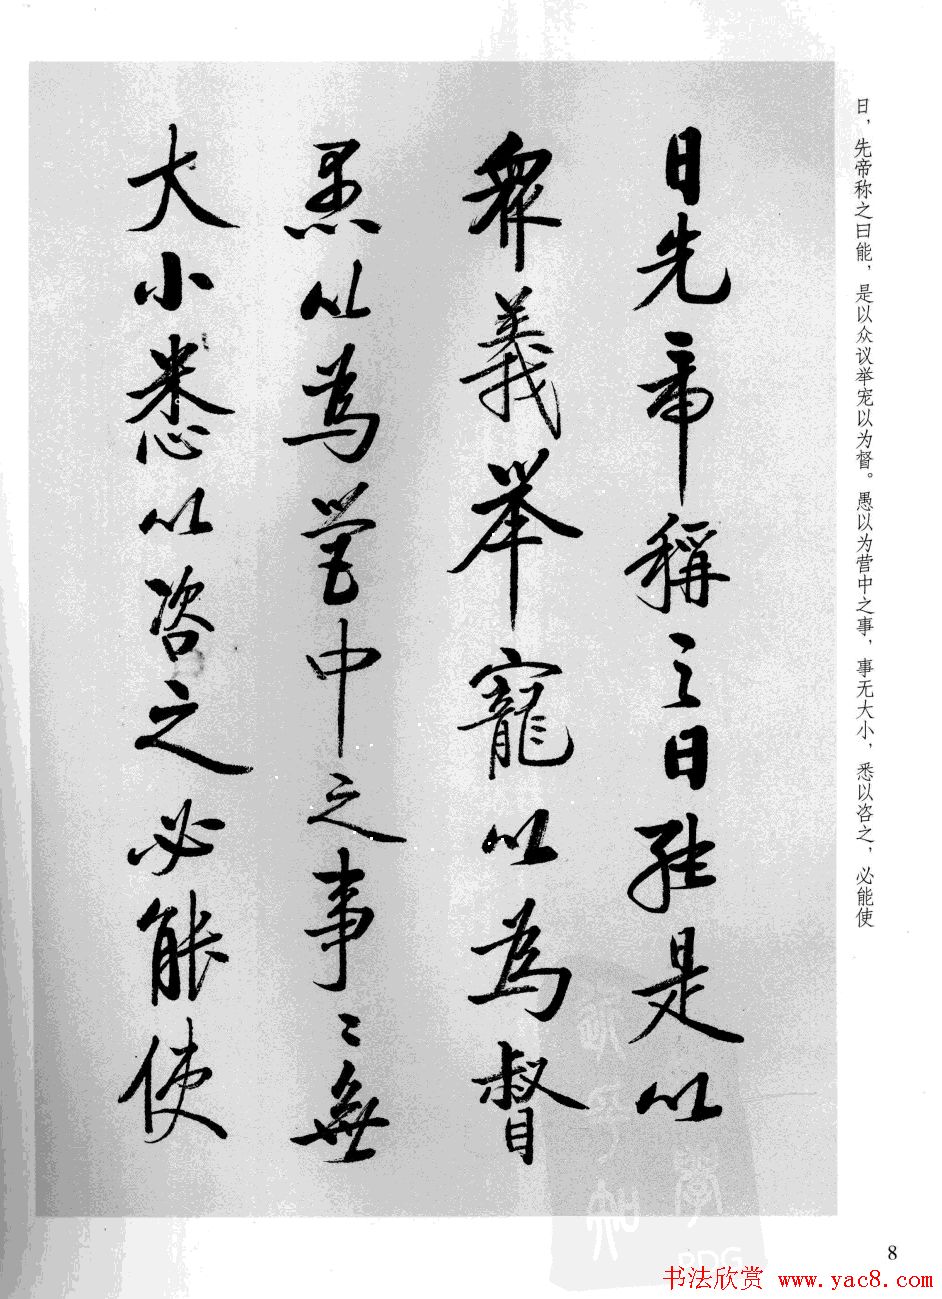 日，先帝称之曰能，是以众议举宠以为督。愚以为营中之事，事无大小，悉以咨之，必能使
日先帝稱之曰能是以
眾義舉寵以為督
愚以為營中之事〻無
大小悉以咨之必能使
PDG
8
书法欣赏 www.yac8.com